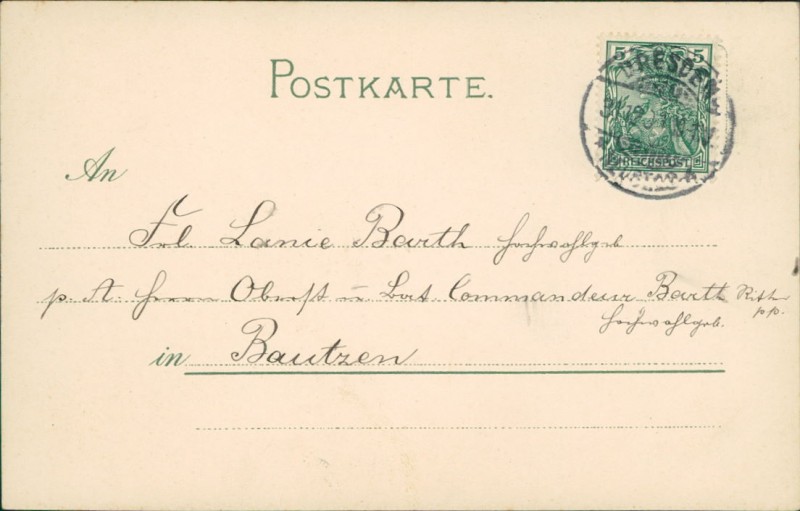 POSTKARTE.
5 5
DRESDEN
REICHSPOST
An
Frl Lanie Barth Hochwohlgeb
p. A. Herrn Oberst u Bat Commandeur Barth Ritter pp.
Hochwohlgeb.
in Bautzen